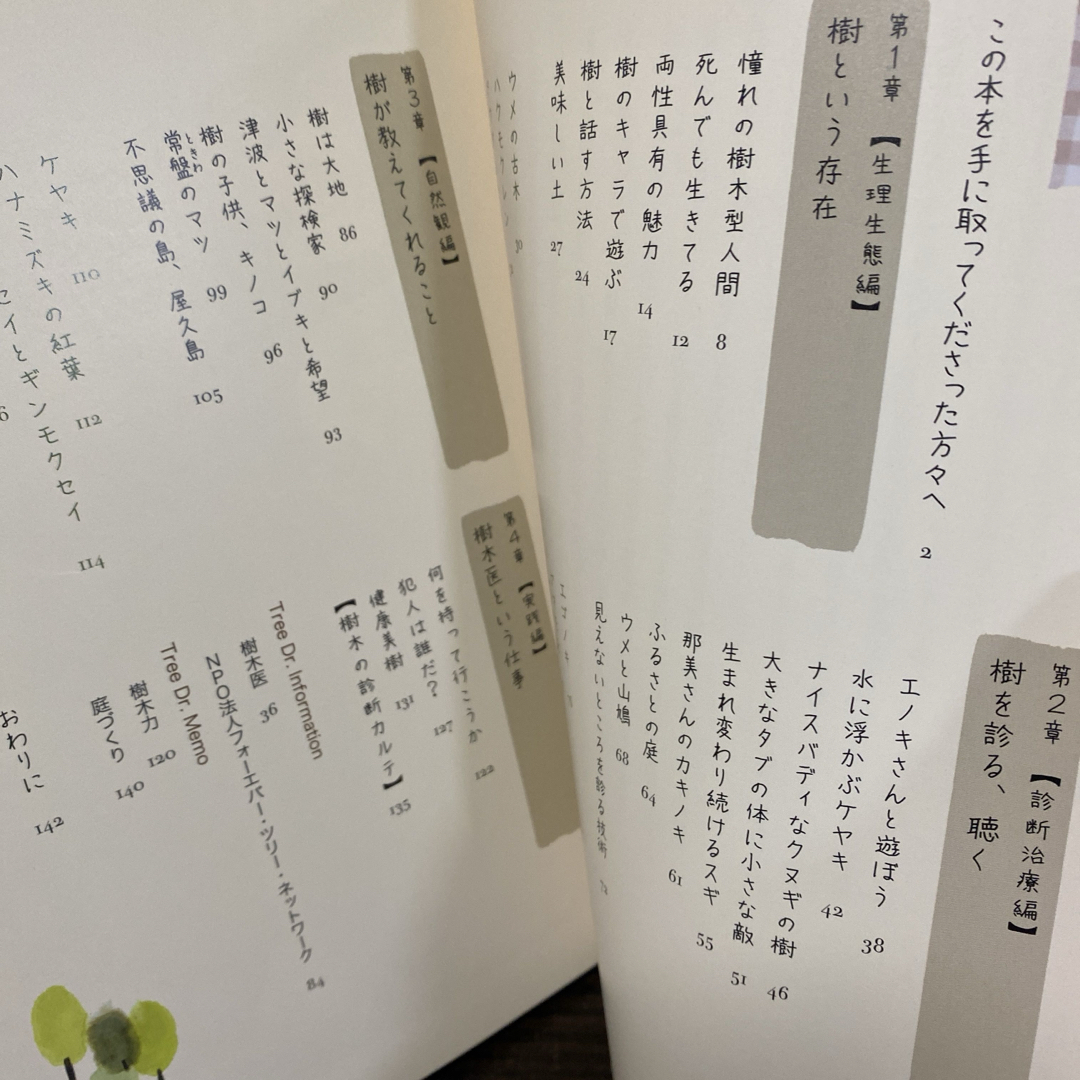 この本を手に取ってくださった方々へ 2
第1章 【生理生態編】
樹という存在
憧れの樹木型人間 8
死んでも生きてる 12
両性具有の魅力 14
樹のキャラで遊ぶ 17
樹と話す方法 24
美味しい土 27
ウメの古木 30
第2章 【診断治療編】
樹を診る、聴く
エノキさんと遊ぼう 38
水に浮かぶケヤキ 42
ナイスバディなクヌギの樹 46
大きなタブの体に小さな敵 51
生まれ変わり続けるスギ 55
那美さんのカキノキ 61
ふるさとの庭 64
ウメと山鳩 68
見えないところを診る技術
エゴノキ
第3章 【自然観編】
樹が教えてくれること
樹は大地 86
小さな探検家 90
津波とマツとイブキと希望 93
樹の子供、キノコ 96
常盤のマツ 99
ときわ
不思議の島、屋久島 105
ケヤキ 110
ハナミズキの紅葉 112
セイとギンモクセイ 114
第4章 【実践編】
樹木医という仕事
何を持って行こうか 122
犯人は誰だ? 127
健康美樹 131
【樹木の診断カルテ】 135
Tree Dr. Information
樹木医 36
NPO法人フォーエバー・ツリー・ネットワーク 84
Tree Dr. Memo
樹木力 120
庭づくり 140
おわりに 142